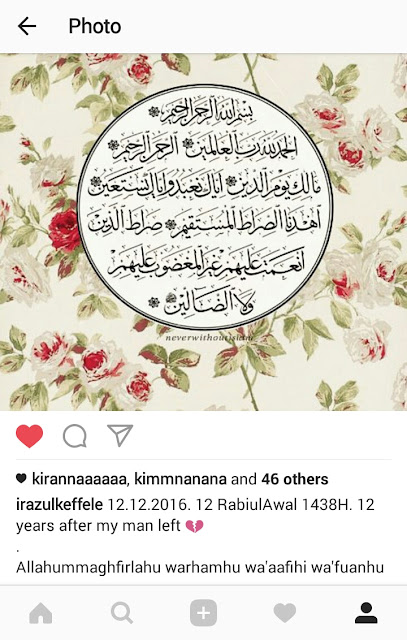 Photo
بسم الله الرحمن الرحيم
الحمد لله رب العالمين الرحمن الرحيم
مالك يوم الدين اياك نعبد وإياك نستعين
اهدنا الصراط المستقيم صراط الذين
أنعمت عليهم غير المغضوب عليهم
ولا الضالين
neverwithoutislam
kirannaaaaaa, kimmnanana and 46 others
irazulkeffele 12.12.2016. 12 RabiulAwal 1438H. 12
years after my man left 💔
.
Allahummaghfirlahu warhamhu wa'aafihi wa'fuanhu